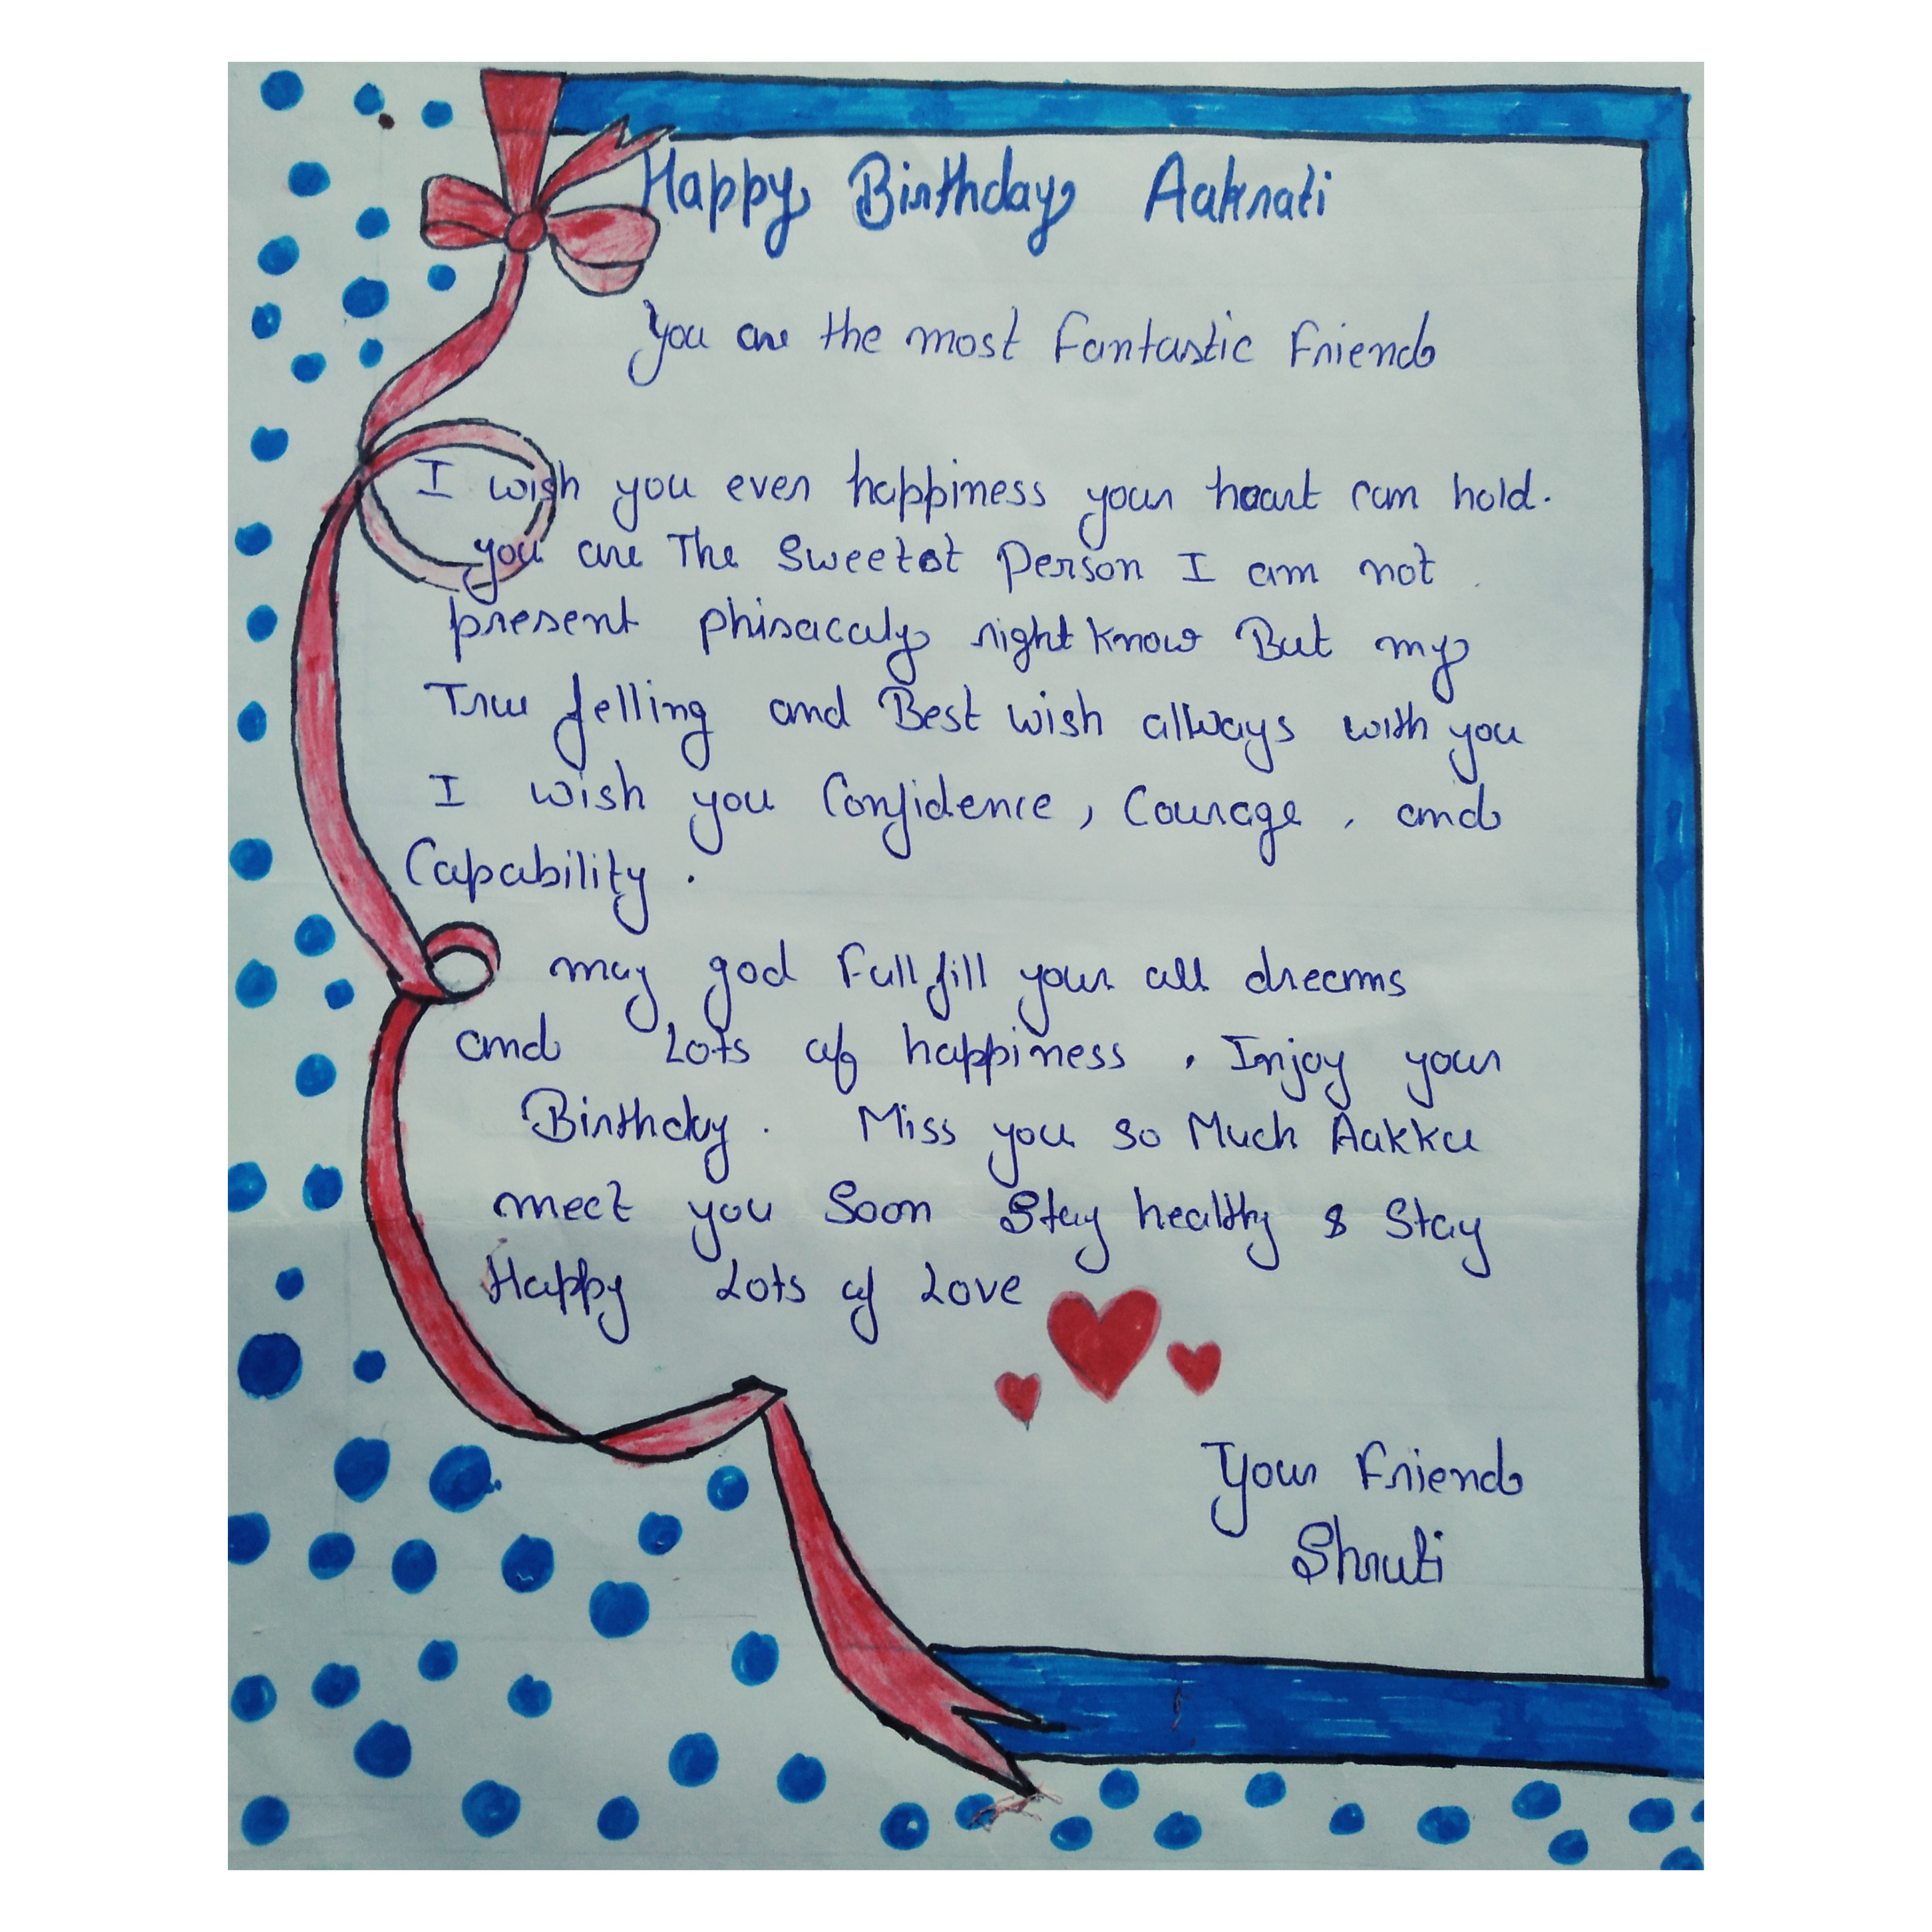 Happy Birthday Aakrati
You are the most Fantastic Friend
I wish you ever happiness your heart can hold.
you are The Sweetest Person I am not
present phisacaly right know But my
True felling and Best wish allways with you
I wish you Confidence, Courage, and
Capability.
may god Fullfill your all dreams
and Lots of happiness, Injoy your
Birthday. Miss you so Much Aakku
meet you Soon Stay healthy & Stay
Happy Lots of Love
Your Friend
Shruti